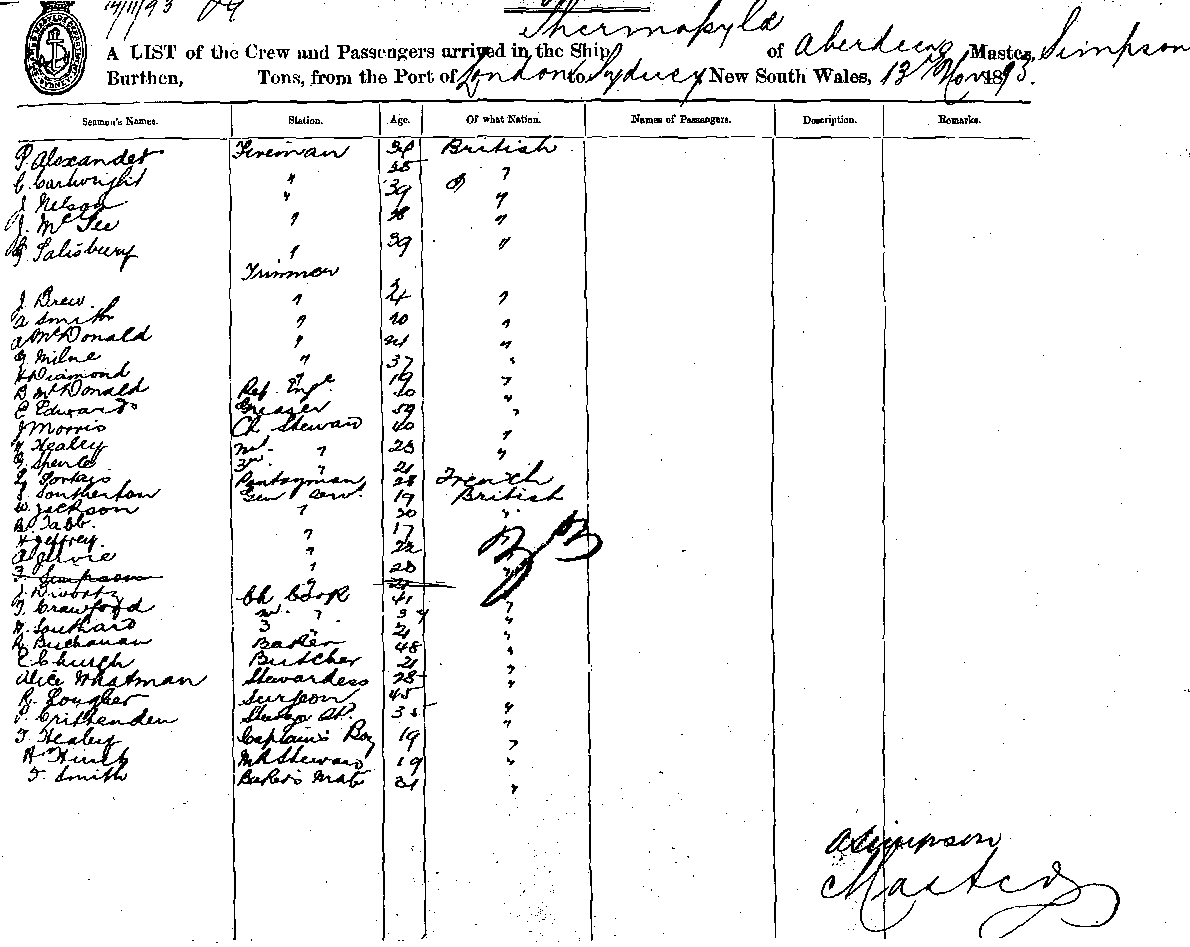 14/11/93
Thermopylæ
A LIST of the Crew and Passengers arrived in the Ship of Aberdeen, Master, Simpson
Burthen, Tons, from the Port of London to Sydney New South Wales, 13th Nov 1893.
Seamen's Names. Station. Age. Of what Nation. Names of Passengers. Description. Remarks.
P. Alexander Fireman 34 British
C. Cartwright " 35 "
J. Nelson " 39 "
J. McGee " "
G. Salisbury " 39 "
Trimmer
J. Drew " "
A Smith " 20 "
A McDonald " 21 "
G Milne " 37 "
H Diamond " 19 "
D McDonald Ref. Engr 40 "
E Edwards Greaser 39 "
J Morris Ch Steward 40 "
H Healey 2nd " 23 "
G. Sperle 3rd " 21 "
Pantryman 28 French
S. Southerton Gen Serv. 19 British
W. Jackson " 20 "
Tabb. " 17
H Jeffrey. " 22
" 20 "
F. Simpson " 21
Ch Cook 41 "
T. Crawford 2nd " 34 "
H. Southard 3 " 21 "
R. Buchanan Baker 48 "
E Church Butcher 21 "
Alice Whatman Stewardess 28 "
R. Lougher Surgeon 45 "
P. Crittenden 35 "
T. Healey Captain's Boy 19 "
H Steward 19 "
F. Smith Baker's Mate 31 "
A Simpson
Master